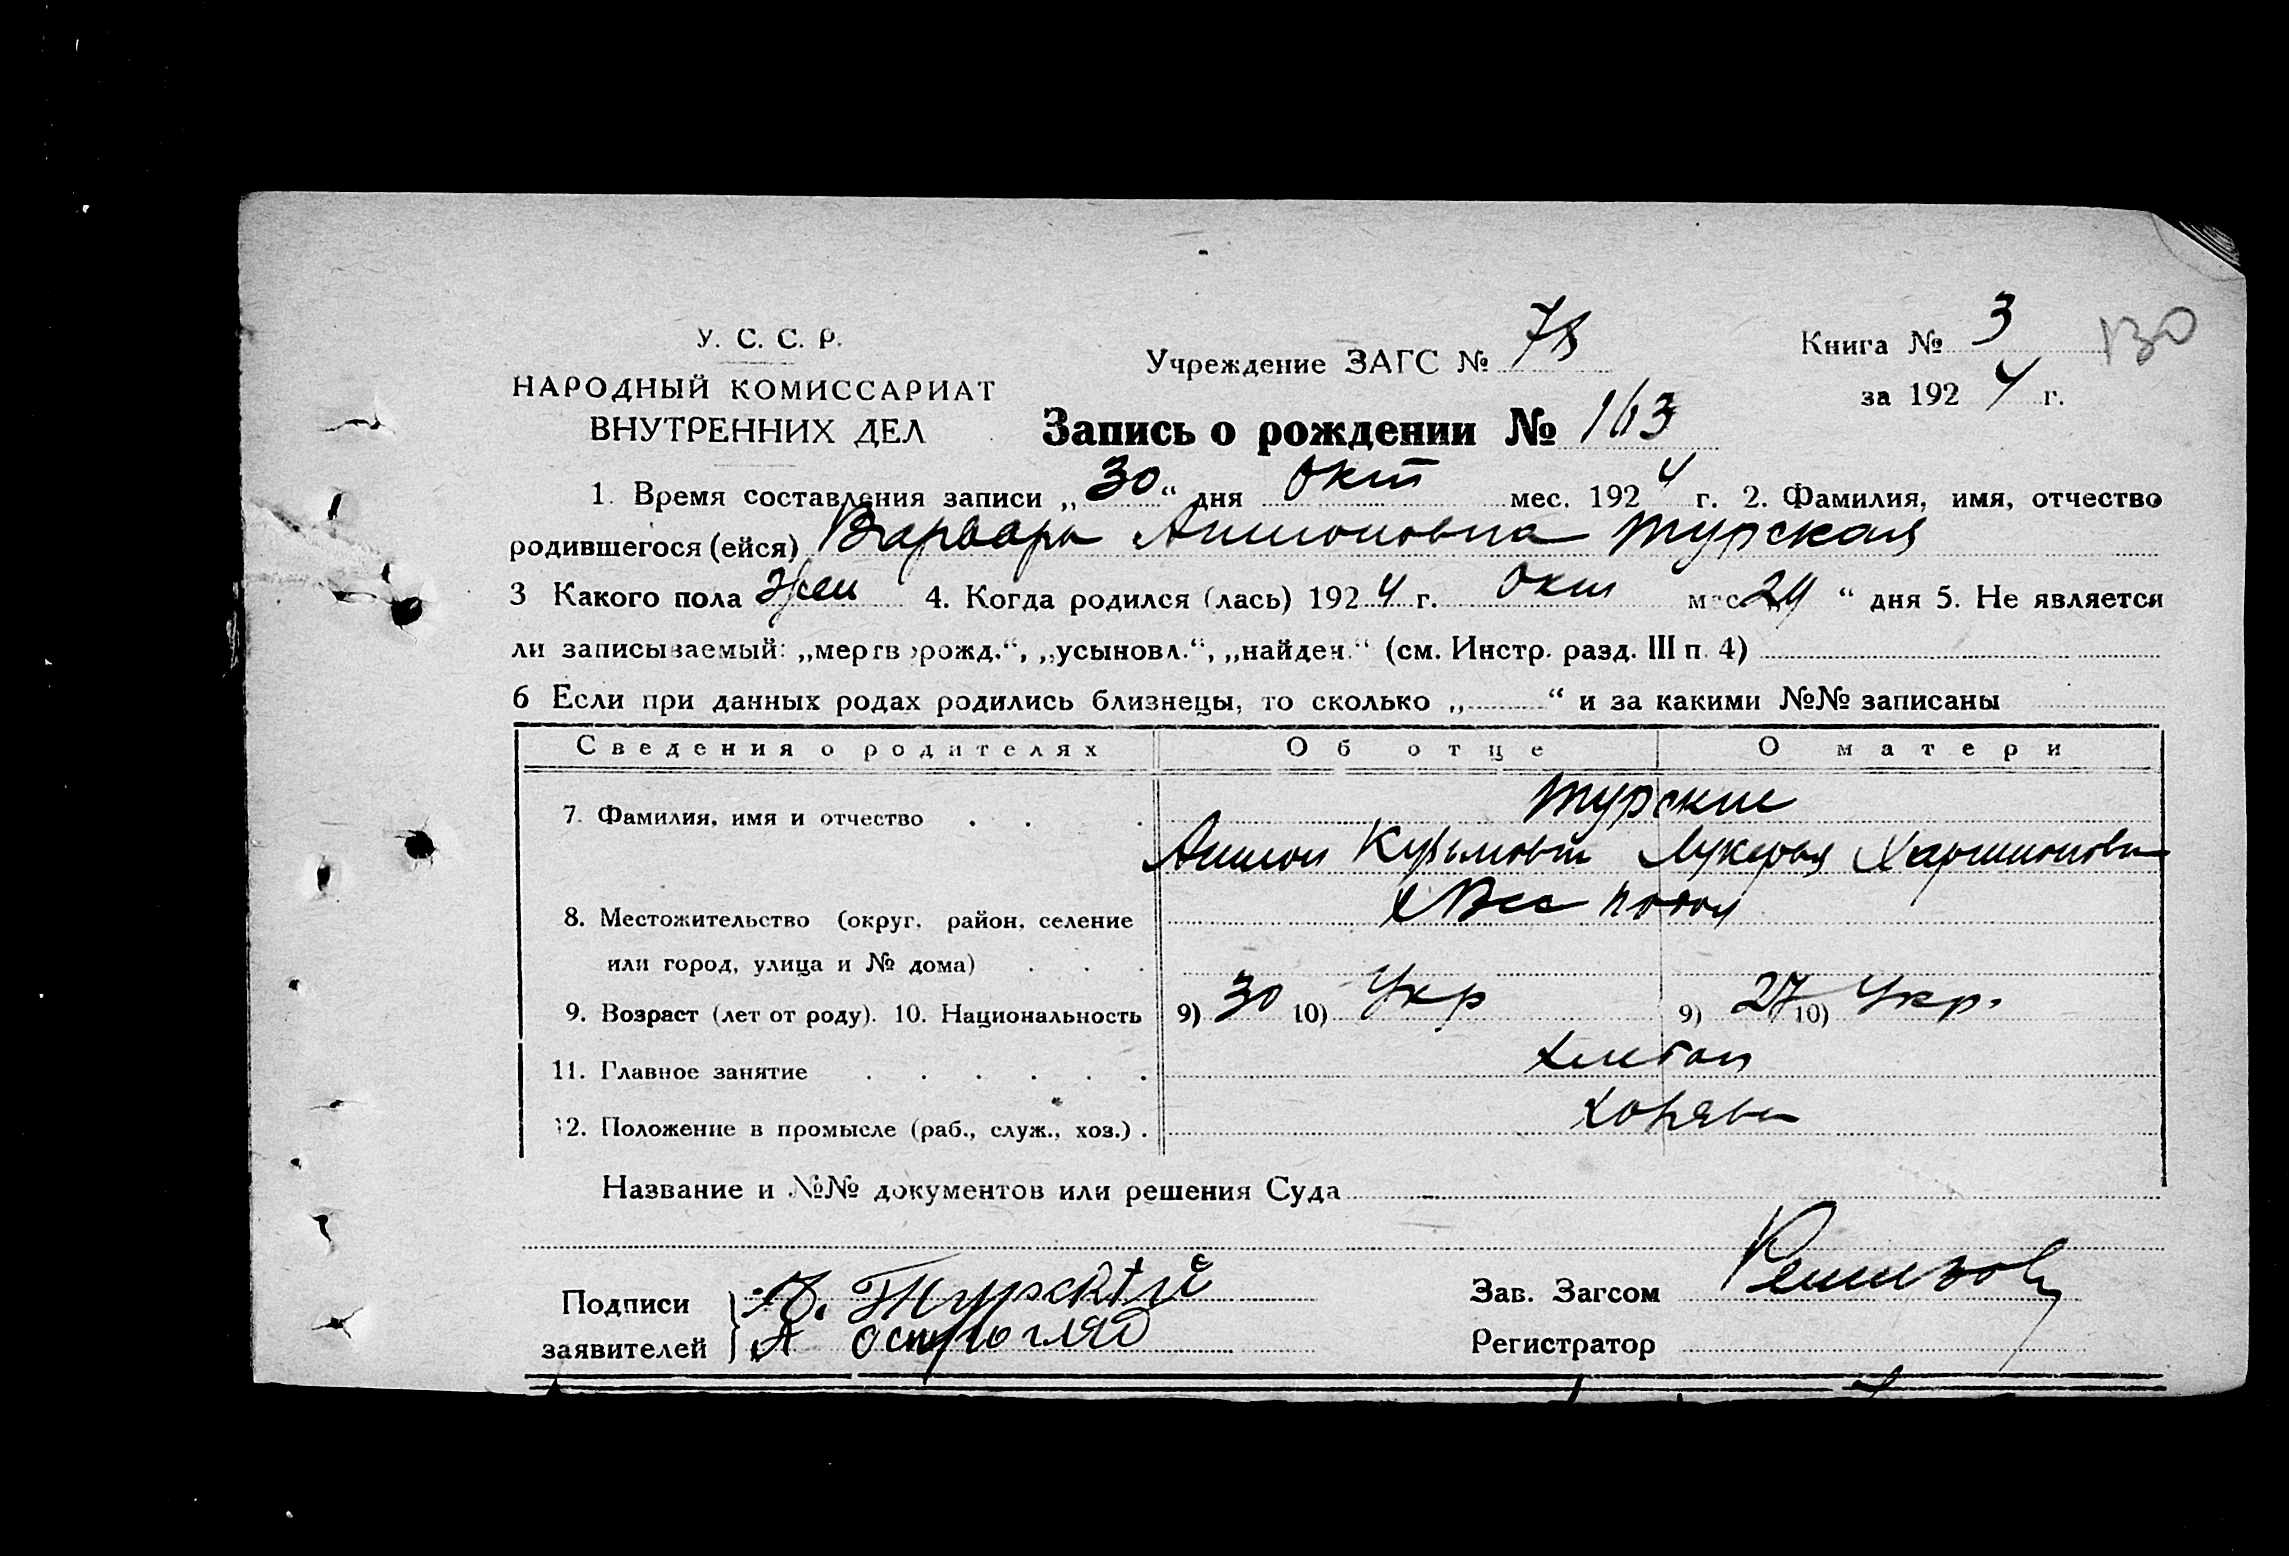 У. С. С. Р.
НАРОДНЫЙ КОМИССАРИАТ
ВНУТРЕННИХ ДЕЛ
Учреждение ЗАГС № 78
Книга № 3 130
за 1924 г.
Запись о рождении № 163
1. Время составления записи „30“ дня Окт мес. 1924 г. 2. Фамилия, имя, отчество
родившегося (ейся) Варвара Антоновна Турская
3 Какого пола жен 4. Когда родился (лась) 1924 г. Окт мес. 29 “ дня 5. Не является
ли записываемый: „мертворожд.“, „усыновл.“, „найден.“ (см. Инстр. разд. III п. 4)
6 Если при данных родах родились близнецы, то сколько „ “ и за какими №№ записаны
Сведения о родителях Об отце О матери
7. Фамилия, имя и отчество Турские
Антон Кузьмович Лукерья Харитоновна
8. Местожительство (округ, район, селение
или город, улица и № дома)
9. Возраст (лет от роду). 10. Национальность 9) 30 10) Укр 9) 27 10) Укр.
11. Главное занятие
12. Положение в промысле (раб., служ., хоз.)
Название и №№ документов или решения Суда
Подписи
заявителей
А. Турскій
А острогляд
Зав. Загсом
Регистратор